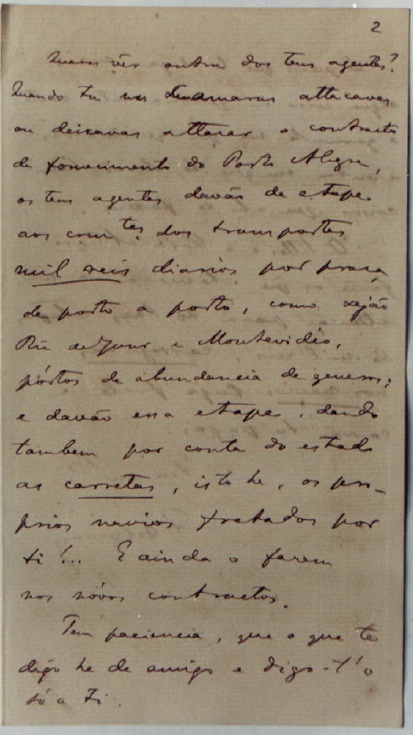 2
Queres vêr outra dos teus agentes?
Quando tu nas Camaras attacavas
ou deixavas attacar o contracto
de fornecimento do Porto Alegre,
os teus agentes davão de etape
aos com.tes dos transportes
mil reis diarios por praça
de porto a porto, como sejão
Rio de Janr e Montevidéo,
pórtos de abundancia de generos;
e davão essa etape, dando
tambem por conta do estado
as carretas, isto he, os pro-
prios navios fretados por
ti!... E ainda o fazem
nos nóvos contractos.
Tem paciencia, que o que te
digo he de amigo e digo-t'o
só a ti.